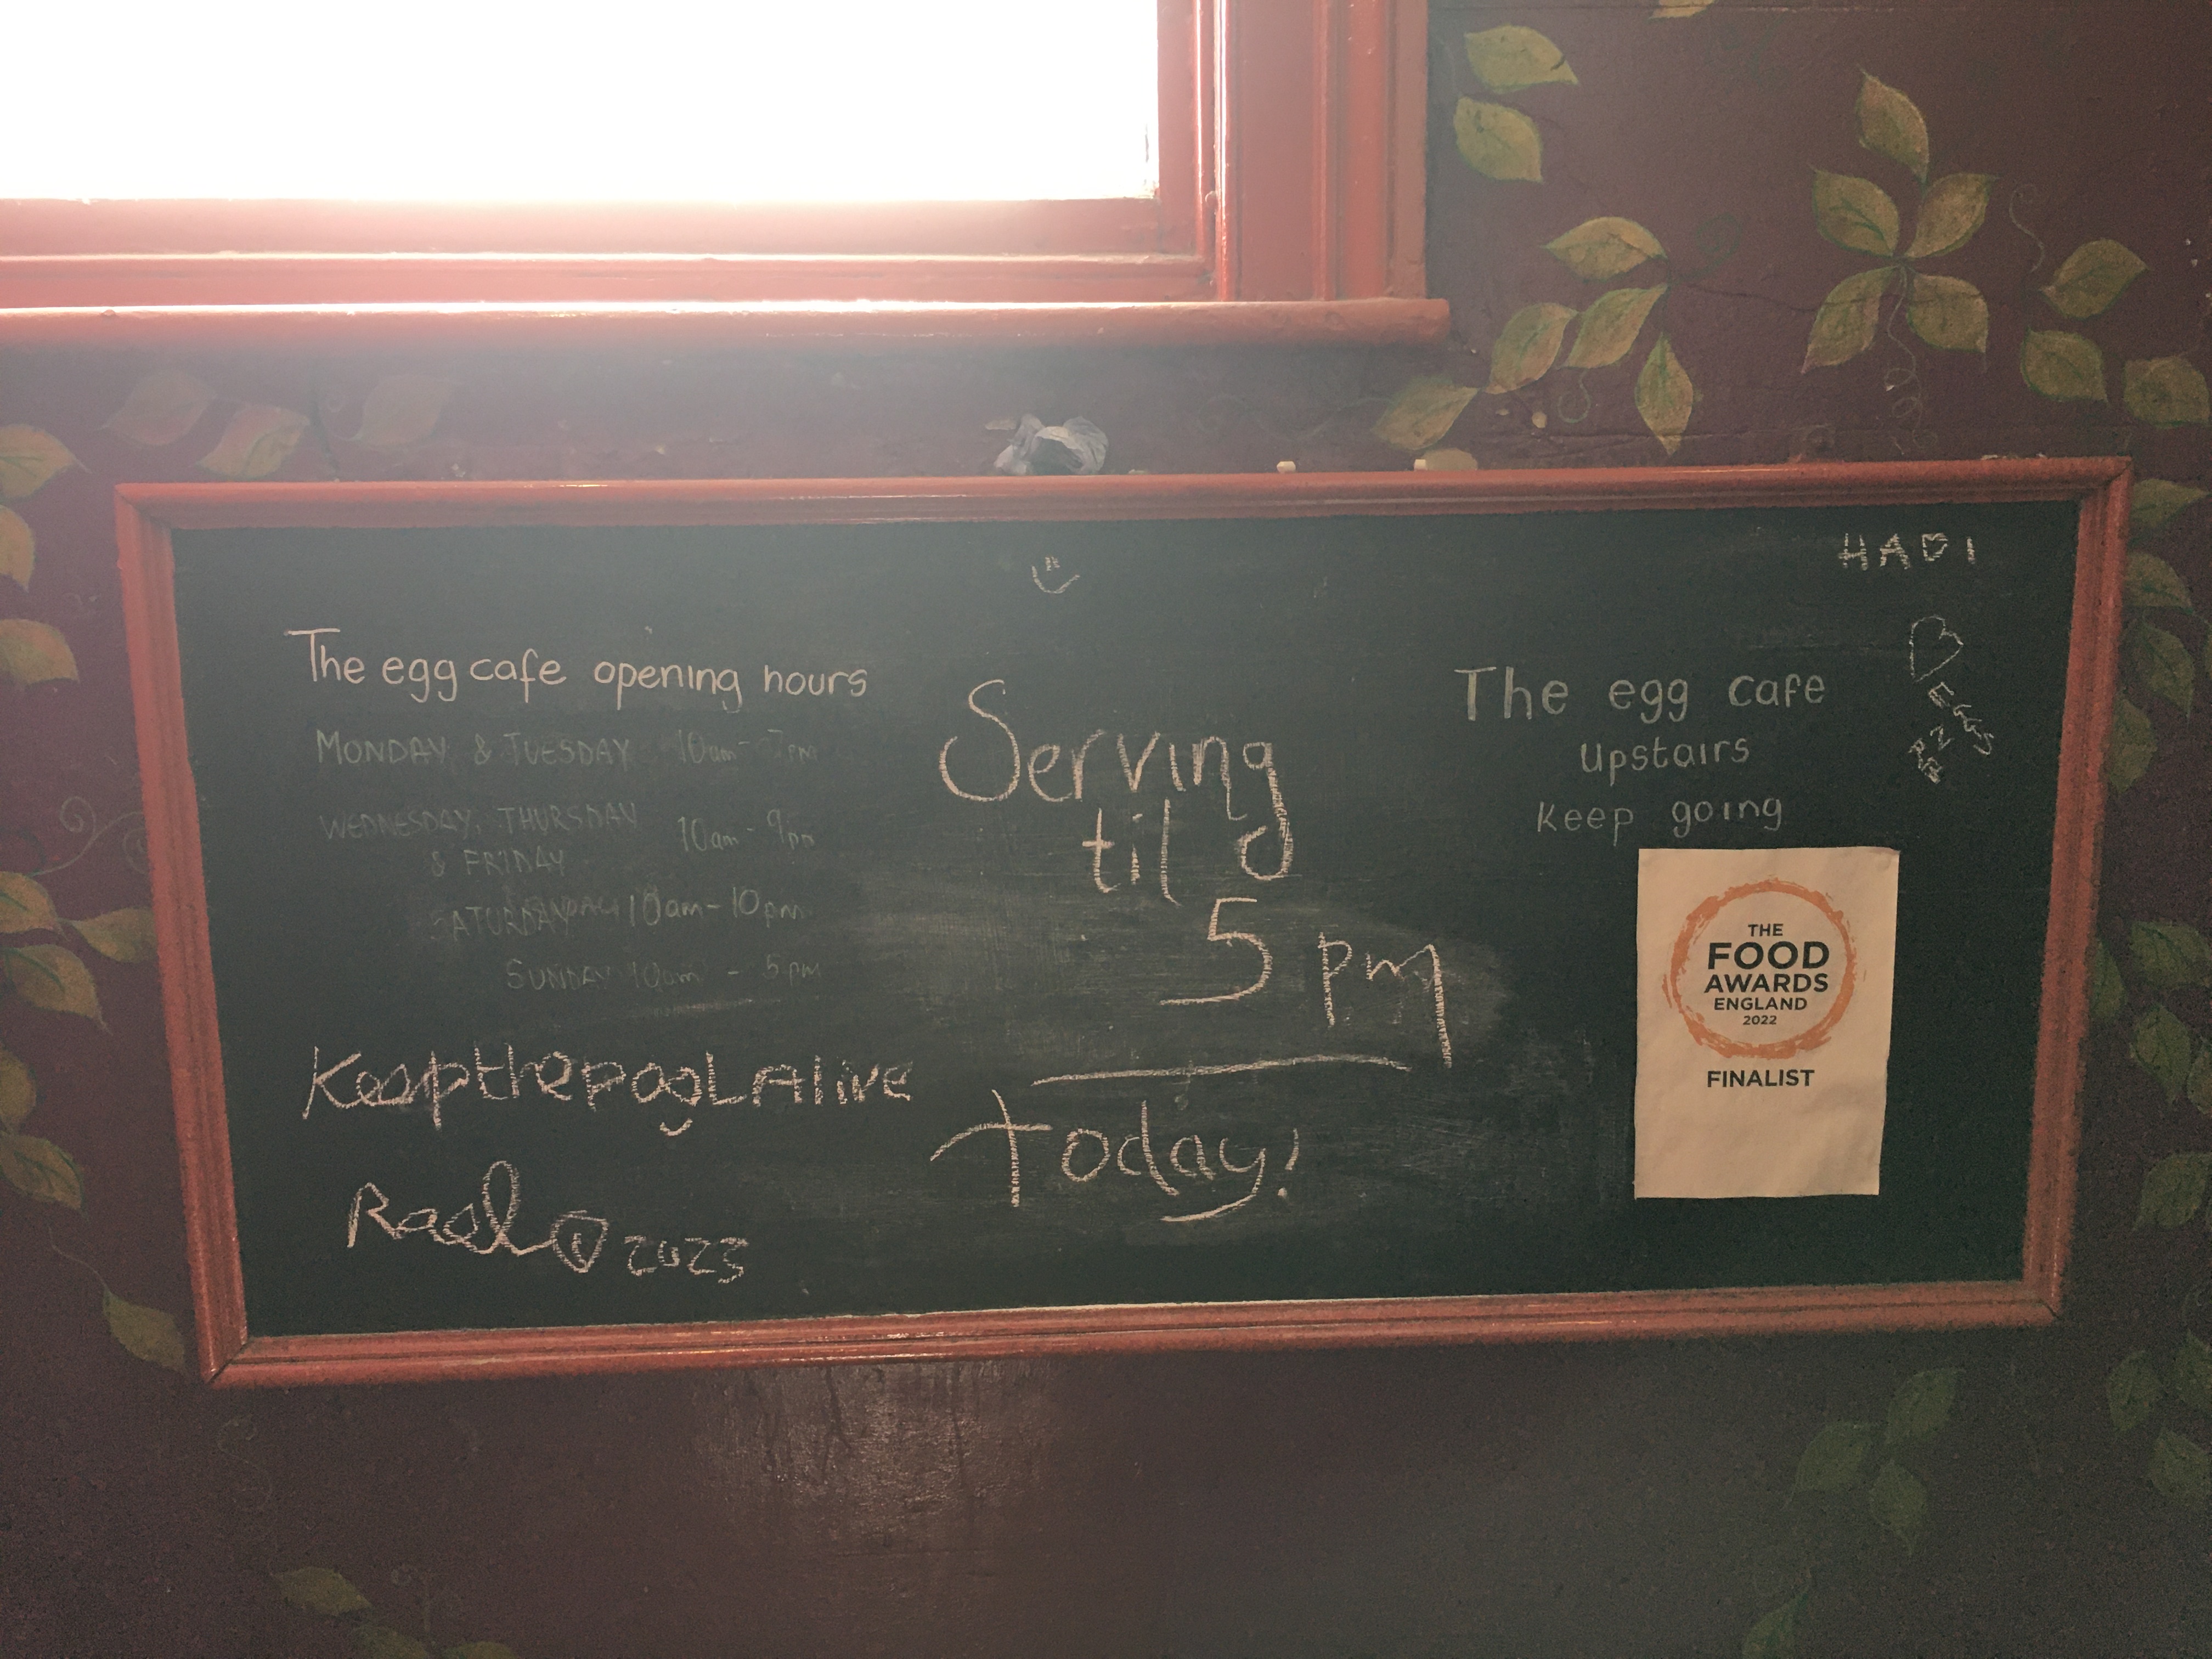 HADI
The egg cafe opening hours
MONDAY & TUESDAY 10am - 7pm
WEDNESDAY, THURSDAY 10am - 9pm
& FRIDAY
SATURDAY 10am - 10pm
SUNDAY 10am - 5pm
Serving
til
5 pm
Today!
The egg cafe
upstairs
Keep going
EGGS
THE
FOOD
AWARDS
ENGLAND
2022
FINALIST
2023